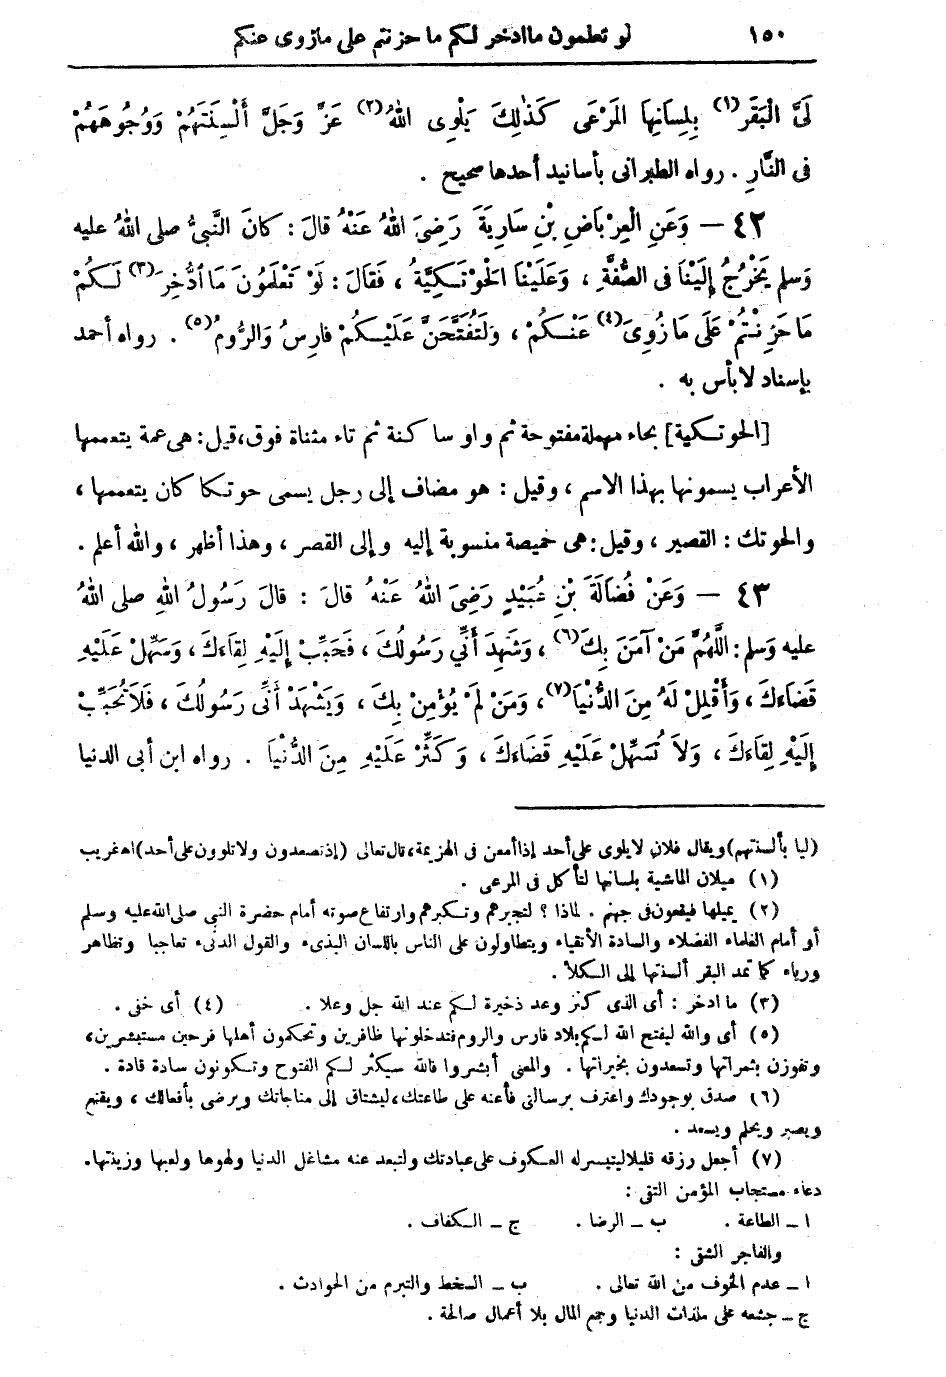 ١٥٠ لو تعلمون ما ادخر لكم ما حزنتم على ما زوى عنكم
لَىَّ الْبَقَرِ(١) بِلِسَانِهَا الْمَرْعَى كَذٰلِكَ يَلْوِى اللهُ(٢) عَزَّ وَجَلَّ أَلْسِنَتَهُمْ وَوُجُوهَهُمْ
فى النَّارِ . رواه الطبرانى بأسانيد أحدها صحيح .
٤٢ — وَعَنِ الْعِرْبَاضِ بْنِ سَارِيَةَ رَضِىَ اللهُ عَنْهُ قالَ : كانَ النَّبِىُّ صلى اللهُ عليه
وسلم يَخْرُجُ إِلَيْنَا فى الصُّفَّةِ ، وَعَلَيْنَا الْحَوْتَكِيَّةُ ، فَقَالَ : لَوْ تَعْلَمُونَ مَا ادُّخِرَ(٣) لَكُمْ
مَا حَزِنْتُمْ عَلَى مَا زُوِىَ(٤) عَنْكُمْ ، وَلَتُفْتَحَنَّ عَلَيْكُمْ فارِسُ وَالرُّومُ(٥) . رواه أحمد
بإسناد لا بأس به .
[الحوتكية] بحاء مهملة مفتوحة ثم واو ساكنة ثم تاء مثناة فوق، قيل: هى عمة يتعممها
الأعراب يسمونها بهذا الاسم ، وقيل : هو مضاف إلى رجل يسمى حوتكا كان يتعممها ،
والحوتك : القصير ، وقيل : هى خميصة منسوبة إليه وإلى القصر ، وهذا أظهر ، والله أعلم .
٤٣ — وَعَنْ فُضَالَةَ بْنِ عُبَيْدٍ رَضِىَ اللهُ عَنْهُ قالَ : قالَ رَسُولُ اللهِ صلى اللهُ
عليه وسلم : اللّٰهُمَّ مَنْ آمَنَ بِكَ(٦) ، وَشَهِدَ أَنِّي رَسُولُكَ ، فَحَبِّبْ إِلَيْهِ لِقَاءَكَ ، وَسَهِّلْ عَلَيْهِ
قَضَاءَكَ ، وَأَقْلِلْ لَهُ مِنَ الدُّنْيَا(٧)، وَمَنْ لَمْ يُؤْمِنْ بِكَ ، وَيَشْهَدْ أَنِّى رَسُولُكَ ، فَلَا تُحَبِّبْ
إِلَيْهِ لِقَاءَكَ ، وَلَا تُسَهِّلْ عَلَيْهِ قَضَاءَكَ ، وَكَثِّرْ عَلَيْهِ مِنَ الدُّنْيَا . رواه ابن أبى الدنيا
(ليا بألسنتهم) ويقال فلان لا يلوى على أحد إذا أمعن فى الهزيمة، قال تعالى (إذ تصعدون ولا تلوون على أحد) اهـ غريب
(١) ميلان الماشية بلسانها لتأكل فى المرعى .
(٢) يميلها فيقعون فى جهنم . لماذا ؟ لتجبرهم وتكبرهم وارتفاع صوته أمام حضرة النبى صلى الله عليه وسلم
أو أمام العلماء الفضلاء والسادة الأتقياء ويتطاولون على الناس باللسان البذىء والقول الدنىء تعاجبا وتظاهر
ورياء كما تمد البقر ألسنتها إلى الكلأ .
(٣) ما ادخر : أى الذى كنز وعد ذخيرة لكم عند الله جل وعلا . (٤) أى خفى .
(٥) أى والله ليفتح الله لكم بلاد فارس والروم فتدخلونها ظافرين وتحكمون أهلها فرحين مستبشرين،
وتفوزن بثمراتها وتسعدون بخيراتها . والمعنى أبشروا فالله سيكثر لكم الفتوح وتكونون سادة قادة .
(٦) صدق بوجودك واعترف برسالتى فأعنه على طاعتك، ليشتاق إلى مناجاتك ويرضى بأفعالك ، ويقنع
ويصبر ويحلم ويسعد .
(٧) أجعل رزقه قليلا ليتيسر له العكوف على عبادتك ولتبعد عنه مشاغل الدنيا ولهوها ولعبها وزينتها.
دعاء مستجاب المؤمن التقى :
ا ـ الطاعة . ب ـ الرضا . ج ـ الكفاف .
والفاجر الشقى :
ا ـ عدم الخوف من الله تعالى . ب ـ السخط والتبرم من الحوادث .
ج ـ جشعه على ملذات الدنيا وجمع المال بلا أعمال صالحة .